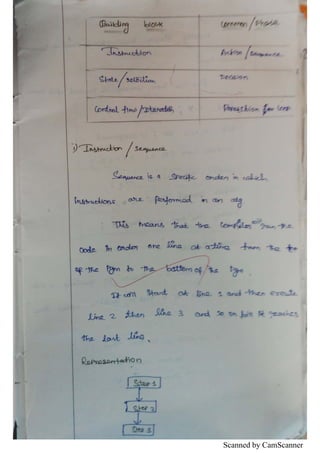 Building block
Common / Phrase
Instruction
Action / Sequence
State / selection
Decision
Control flow / Iteration
Repetition for loop
i) Instruction / Sequence
Sequence is a specific order in which
instructions are performed in an alg
This means that the computer run the
code in order one line at a time from the top
of the Pgm to the bottom of the Pgm.
It will start at line 1 and then execute
line 2 then line 3 and so on till it reaches
the last line.
Representation
Step 1
Step 2
Step 3
Scanned by CamScanner